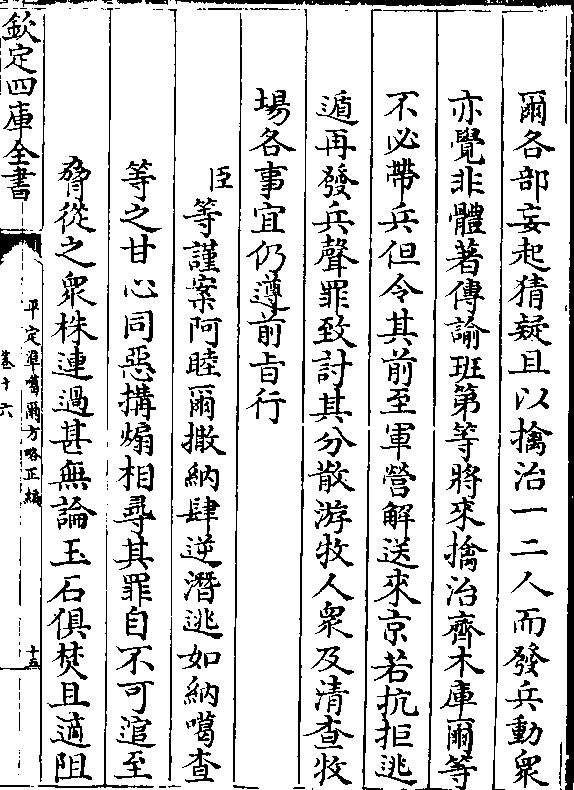 爾各部妄起猜疑且以擒治一二人而發兵動衆
亦覺非體著傳諭班第等將來擒治齊木庫爾等
不必帶兵但令其前至軍營解送來京若抗拒逃
遁再發兵聲罪致討其分散游牧人衆及清查牧
場各事宜仍遵前㫖行
臣等謹案阿睦爾撒納肆逆潛逃如納噶查
等之甘心同惡搆煽相尋其罪自不可逭至
脅從之衆株連過甚無論玉石俱焚且適阻
欽定四庫全書
平定準噶爾方略正編
卷十六
十五